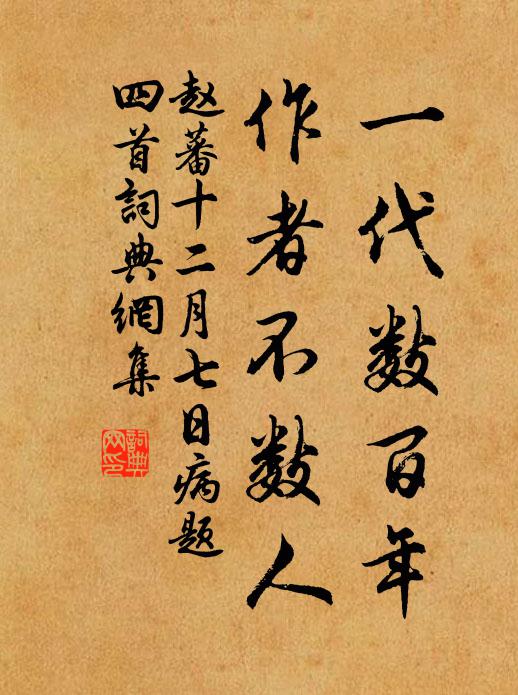 一代数百年
作者不数人
赵蕃十二月七日病题
四首詞典網集
詞典
网印